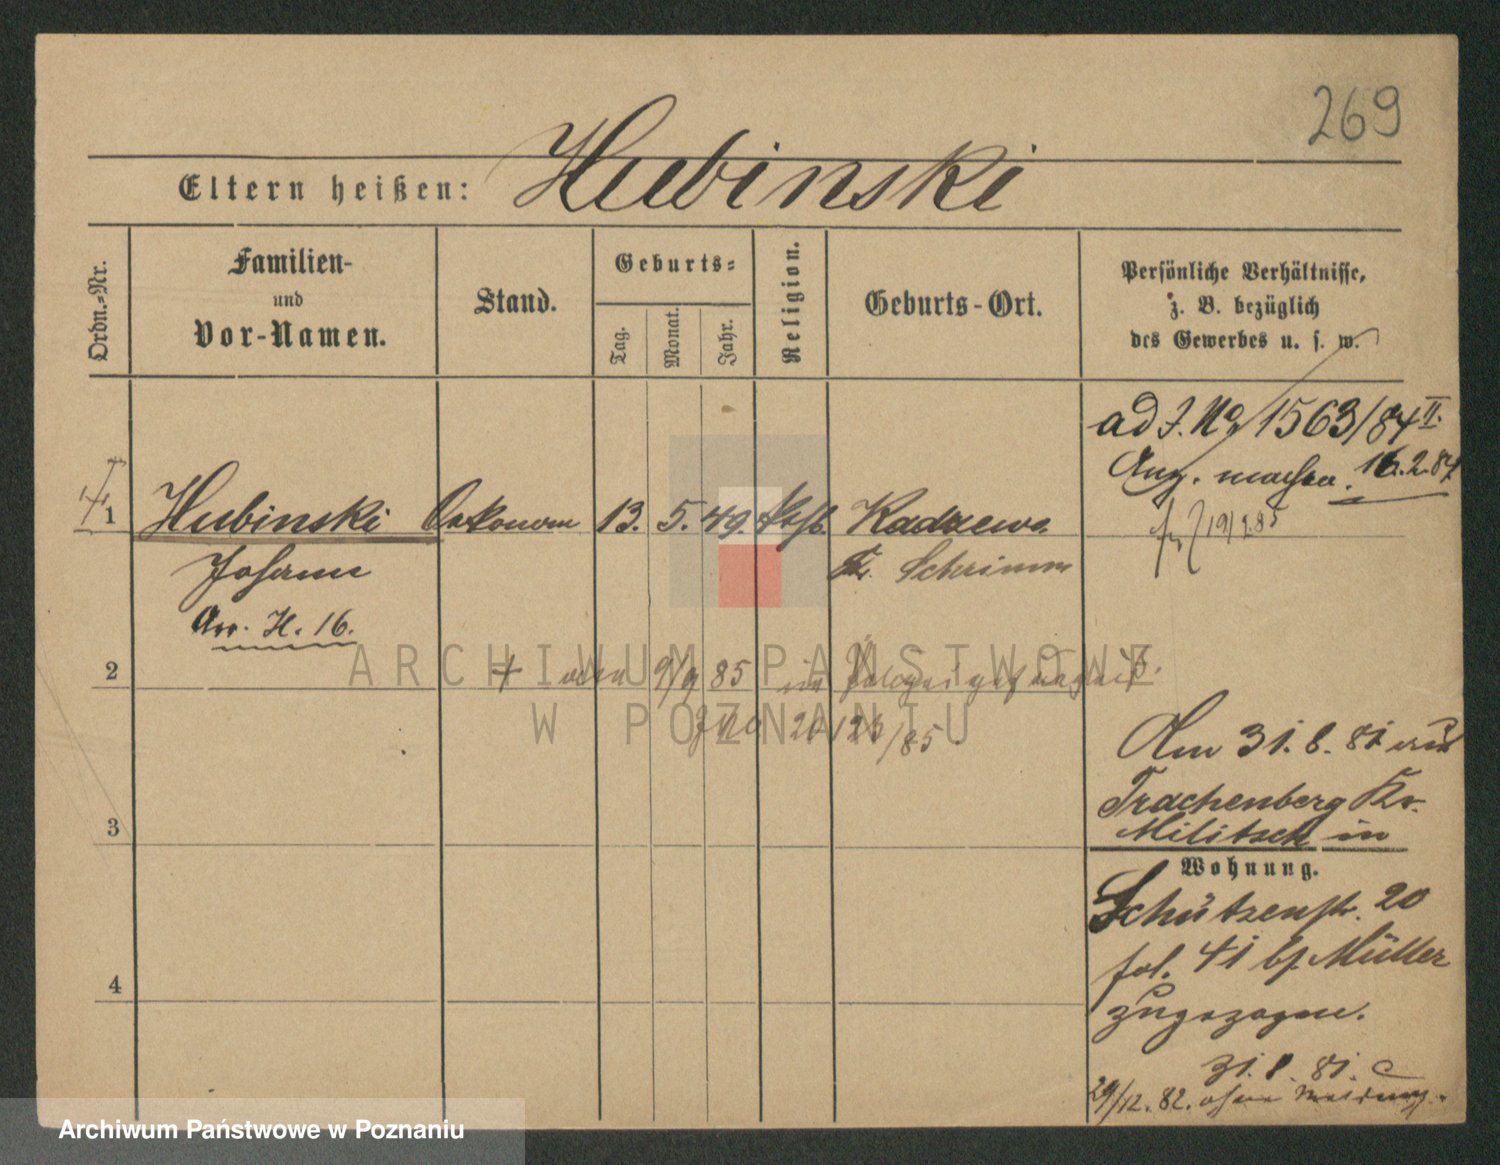 269
Eltern heißen: Hubinski
Ordn.-Nr.
Familien-
und
Vor-Namen.
Stand.
Geburts-
Tag.
Monat.
Jahr.
Religion.
Geburts-Ort.
Persönliche Verhältnisse,
z. B. bezüglich
des Gewerbes u. s. w.
ad J. No 1563/84 II.
16.2.84
19/1.85
1 Hubinski Oekonom 13. 5. 49. kath. Kadzewo
Johann Kr. Schrimm
H. 16.
2 + den 9/9 85 im Polizeigefängniß.
/85.
ARCHIWUM PAŃSTWOWE
W POZNANIU
Am 31. 8. 81 aus
Trachenberg Kr.
3 Militsch in
Wohnung.
Schützenstr. 20
fol. 41 bei Müller
4 zugezogen.
31. 8. 81.
29/12. 82. ohne Meldung.
Archiwum Państwowe w Poznaniu